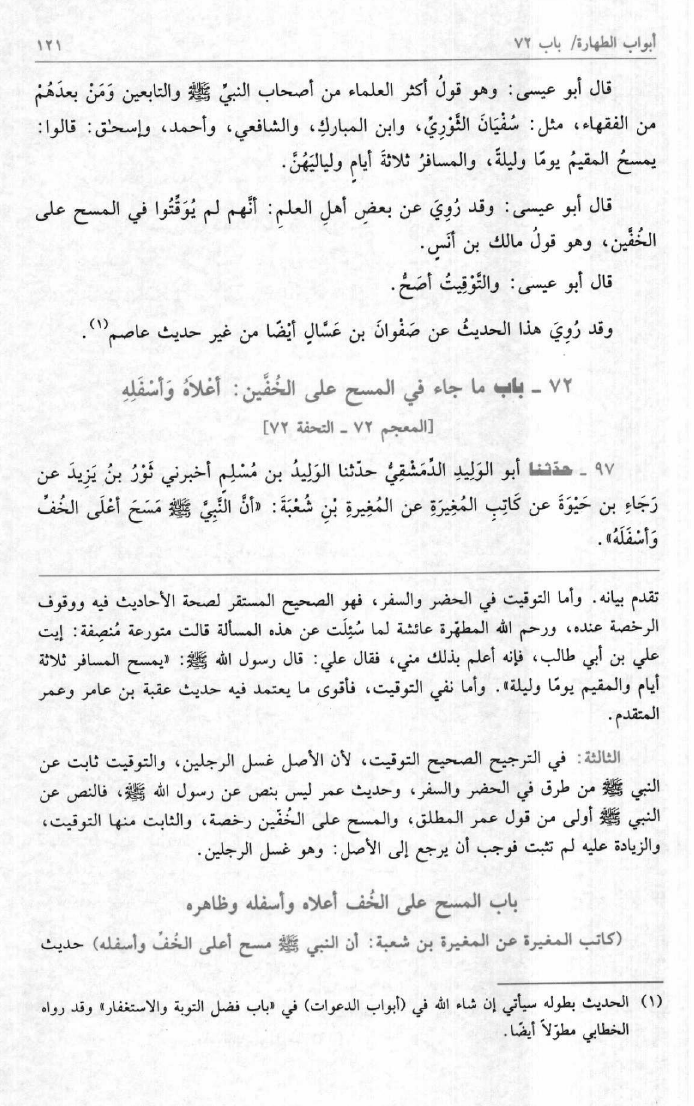 أبواب الطهارة/ باب ٧٢ ١٢١
قال أبو عيسى: وهو قولُ أكثر العلماء من أصحاب النبيِّ ﷺ والتابعين وَمَنْ بعدَهُمْ
من الفقهاء، مثل: سُفْيَانَ الثَّوْرِيِّ، وابن المباركِ، والشافعي، وأحمد، وإسحٰق: قالوا:
يمسحُ المقيمُ يومًا وليلةً، والمسافرُ ثلاثةَ أيامٍ ولياليَهُنَّ.
قال أبو عيسى: وقد رُوِيَ عن بعضِ أهلِ العلمِ: أنَّهم لم يُوَقِّتُوا في المسح على
الخُفَّين، وهو قولُ مالك بن أنَسٍ.
قال أبو عيسى: والتَّوْقِيتُ أصَحُّ.
وقد رُوِيَ هذا الحديثُ عن صَفْوانَ بن عَسَّالٍ أيْضًا من غير حديث عاصم(١).
٧٢ ـ باب ما جاء في المسح على الخُفَّين: أعْلاَهُ وَأسْفَلِهِ
[المعجم ٧٢ ـ التحفة ٧٢]
٩٧ ـ حدّثنا أبو الوَلِيدِ الدِّمَشْقِيُّ حدّثنا الوَلِيدُ بن مُسْلِمٍ أخبرني ثَوْرُ بنُ يَزِيدَ عن
رَجَاءِ بن حَيْوَةَ عن كَاتِبِ المُغِيرَةِ عن المُغِيرةِ بْنِ شُعْبَةَ: «أنَّ النَّبِيَّ ﷺ مَسَحَ أعْلَى الخُفِّ
وَأسْفَلَهُ».
تقدم بيانه. وأما التوقيت في الحضر والسفر، فهو الصحيح المستقر لصحة الأحاديث فيه ووقوف
الرخصة عنده، ورحم الله المطهّرة عائشة لما سُئِلَت عن هذه المسألة قالت متورعة مُنصِفة: إيت
علي بن أبي طالب، فإنه أعلم بذلك مني، فقال علي: قال رسول الله ﷺ: «يمسح المسافر ثلاثة
أيام والمقيم يومًا وليلة». وأما نفي التوقيت، فأقوى ما يعتمد فيه حديث عقبة بن عامر وعمر
المتقدم.
الثالثة: في الترجيح الصحيح التوقيت، لأن الأصل غسل الرجلين، والتوقيت ثابت عن
النبي ﷺ من طرق في الحضر والسفر، وحديث عمر ليس بنص عن رسول الله ﷺ، فالنص عن
النبي ﷺ أولى من قول عمر المطلق، والمسح على الخُفّين رخصة، والثابت منها التوقيت،
والزيادة عليه لم تثبت فوجب أن يرجع إلى الأصل: وهو غسل الرجلين.
باب المسح على الخُف أعلاه وأسفله وظاهره
(كاتب المغيرة عن المغيرة بن شعبة: أن النبي ﷺ مسح أعلى الخُفِّ وأسفله) حديث
(١) الحديث بطوله سيأتي إن شاء الله في (أبواب الدعوات) في «باب فضل التوبة والاستغفار» وقد رواه
الخطابي مطوّلاً أيضًا.